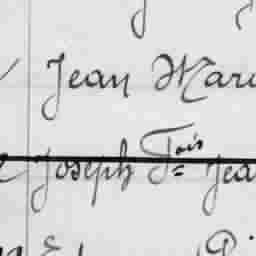 Jean Mari
Joseph Fois Jea